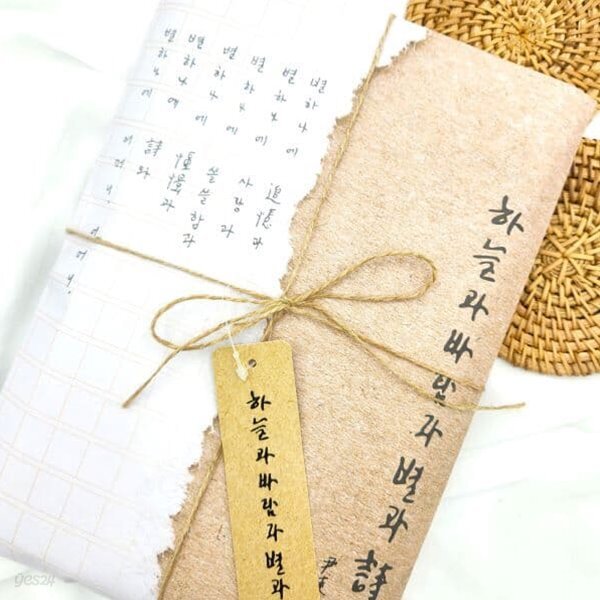 하늘과 바람과 별과 詩
尹
별하나에 追憶과
별하나에 사랑과
별하나에 쓸쓸함과
별하나에 憧憬과
별하나에 詩와
별하나에 어머니, 어머니,
하늘과 바람과 별과
yes24